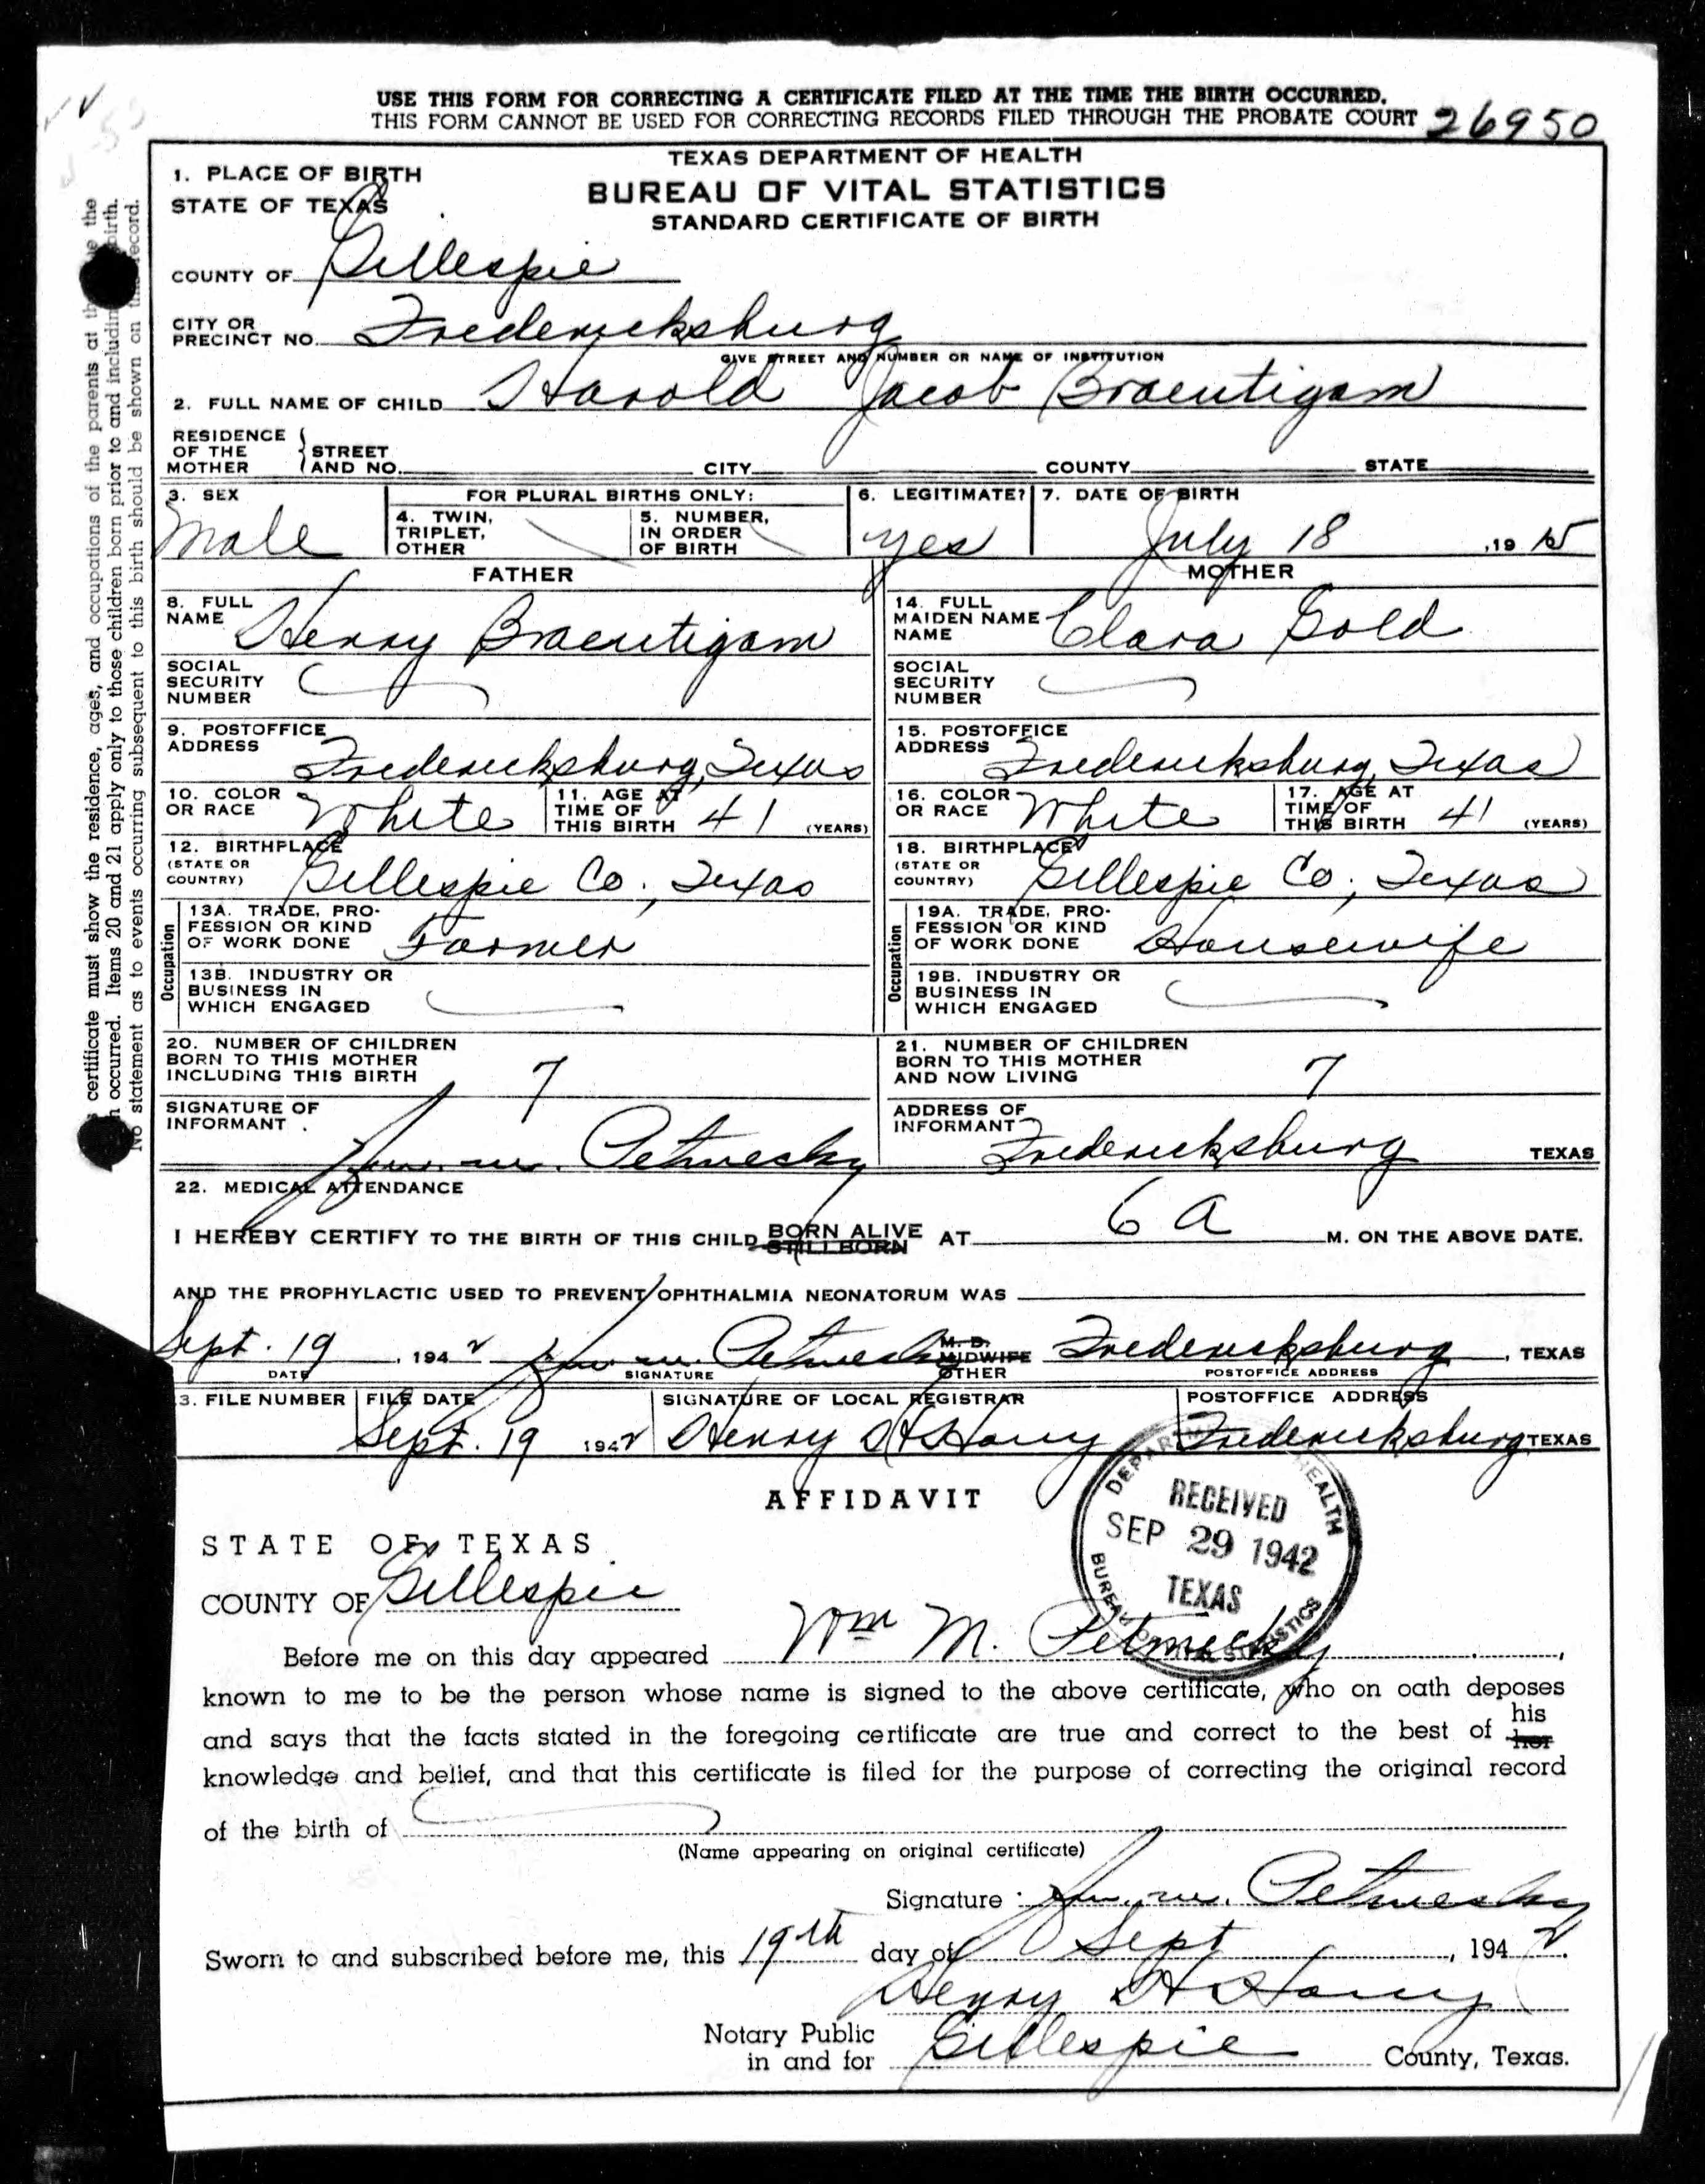 USE THIS FORM FOR CORRECTING A CERTIFICATE FILED AT THE TIME THE BIRTH OCCURRED.
THIS FORM CANNOT BE USED FOR CORRECTING RECORDS FILED THROUGH THE PROBATE COURT 26950
TEXAS DEPARTMENT OF HEALTH
BUREAU OF VITAL STATISTICS
STANDARD CERTIFICATE OF BIRTH
1. PLACE OF BIRTH
STATE OF TEXAS
COUNTY OF Gillespie
CITY OR PRECINCT NO. Fredericksburg
GIVE STREET AND NUMBER OR NAME OF INSTITUTION
2. FULL NAME OF CHILD Harold Jacob Braeutigam
RESIDENCE OF THE MOTHER { STREET AND NO. CITY COUNTY STATE
3. SEX Male
FOR PLURAL BIRTHS ONLY:
4. TWIN, TRIPLET, OTHER
5. NUMBER, IN ORDER OF BIRTH
6. LEGITIMATE? yes
7. DATE OF BIRTH July 18, 1915
FATHER
8. FULL NAME Henry Braeutigam
SOCIAL SECURITY NUMBER
9. POSTOFFICE ADDRESS Fredericksburg, Texas
10. COLOR OR RACE White
11. AGE AT TIME OF THIS BIRTH 41 (YEARS)
12. BIRTHPLACE (STATE OR COUNTRY) Gillespie Co., Texas
Occupation
13A. TRADE, PROFESSION OR KIND OF WORK DONE Farmer
13B. INDUSTRY OR BUSINESS IN WHICH ENGAGED
MOTHER
14. FULL MAIDEN NAME NAME Clara Gold
SOCIAL SECURITY NUMBER
15. POSTOFFICE ADDRESS Fredericksburg, Texas
16. COLOR OR RACE White
17. AGE AT TIME OF THIS BIRTH 41 (YEARS)
18. BIRTHPLACE (STATE OR COUNTRY) Gillespie Co., Texas
Occupation
19A. TRADE, PROFESSION OR KIND OF WORK DONE Housewife
19B. INDUSTRY OR BUSINESS IN WHICH ENGAGED
20. NUMBER OF CHILDREN BORN TO THIS MOTHER INCLUDING THIS BIRTH 7
21. NUMBER OF CHILDREN BORN TO THIS MOTHER AND NOW LIVING 7
SIGNATURE OF INFORMANT Wm. M. Petmecky
ADDRESS OF INFORMANT Fredericksburg TEXAS
22. MEDICAL ATTENDANCE
I HEREBY CERTIFY TO THE BIRTH OF THIS CHILD BORN ALIVE STILLBORN AT 6 A M. ON THE ABOVE DATE.
AND THE PROPHYLACTIC USED TO PREVENT OPHTHALMIA NEONATORUM WAS
Sept. 19, 1942 Wm. M. Petmecky M. D. MIDWIFE OTHER Fredericksburg, TEXAS
DATE SIGNATURE POSTOFFICE ADDRESS
3. FILE NUMBER FILE DATE SIGNATURE OF LOCAL REGISTRAR POSTOFFICE ADDRESS
Sept. 19 1942 Henry Fredericksburg TEXAS
AFFIDAVIT
DEPARTMENT HEALTH
RECEIVED
SEP 29 1942
TEXAS
STATE OF TEXAS
COUNTY OF Gillespie
Before me on this day appeared Wm M. Petmecky,
known to me to be the person whose name is signed to the above certificate, who on oath deposes
and says that the facts stated in the foregoing certificate are true and correct to the best of his her
knowledge and belief, and that this certificate is filed for the purpose of correcting the original record
of the birth of
(Name appearing on original certificate)
Signature: Wm. M. Petmecky
Sworn to and subscribed before me, this 19th day of Sept, 1942.
Henry
Notary Public in and for Gillespie County, Texas.
certificate must show the residence, ages, and occupations of the parents at the
occurred. Items 20 and 21 apply only to those children born prior to and including birth.
No statement as to events occurring subsequent to this birth should be shown on record.